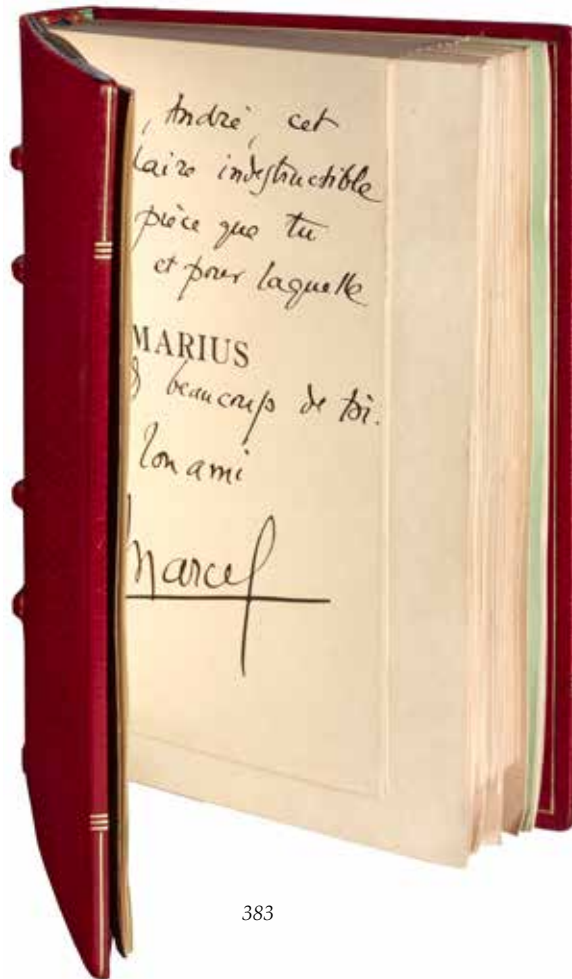 , André, cet
laire indestructible
pièce que tu
et pour laquelle
MARIUS
beaucoup de toi.
Ton ami
Marcel
383